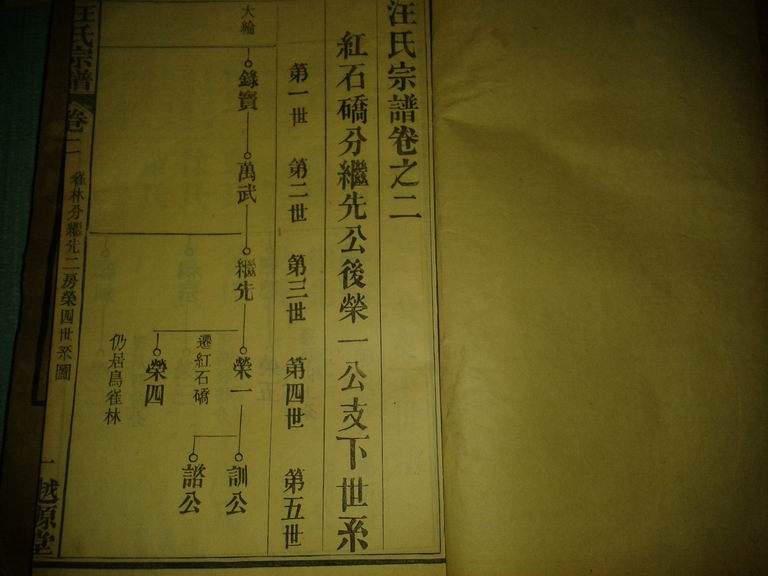 汪氏宗譜卷之二
紅石礄分繼先公後榮一公支下世系
第一世
第二世
第三世
第四世
第五世
大綸
錄寶
萬武
繼先
榮一
訓公
遷紅石礄
諮公
榮四
仍居烏雀林
汪氏宗譜
卷二
雀林分繼先二房榮四世系圖
一
越原堂